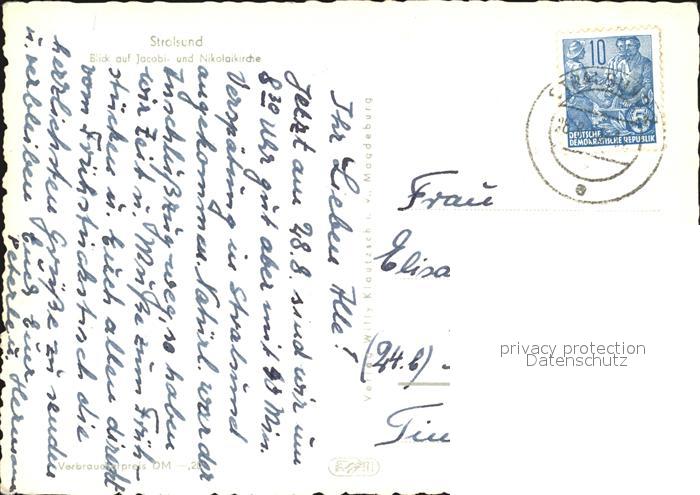 Stralsund
Blick auf Jacobi- und Nikolaikirche
Ihr Lieben Alle!
Jetzt am 28.8. sind wir um
8 30 Uhr gut aber mit 90 Min.
Verspätung in Stralsund
angekommen. Natürl. war der
Anschlußzug weg, so haben
wir Zeit u. Muße zum Früh-
stücken u. Euch allen direkt
vom Frühstückstisch die
herzlichsten Grüße zu senden
u. verbleiben Eure
Hermann
Verlag Willy Klautzsch i. V., Magdeburg
Verbraucherpreis DM -,20
10
5
DEUTSCHE
DEMOKRATISCHE REPUBLIK
Frau
Elisa
(24.b)
privacy protection
Datenschutz